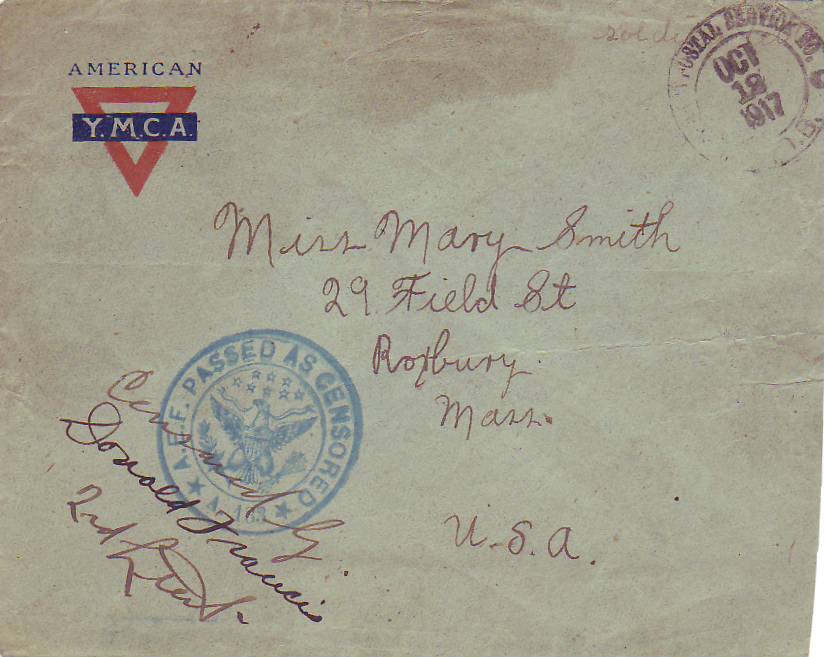 AMERICAN
Y.M.C.A.
POSTAL SERVICE NO.
OCT
1917
Miss Mary Smith
29 Field St
Roxbury
Mass.
U.S.A.
A.E.F. PASSED AS CENSORED
Censored by
Donald Francis
2nd Lieut.